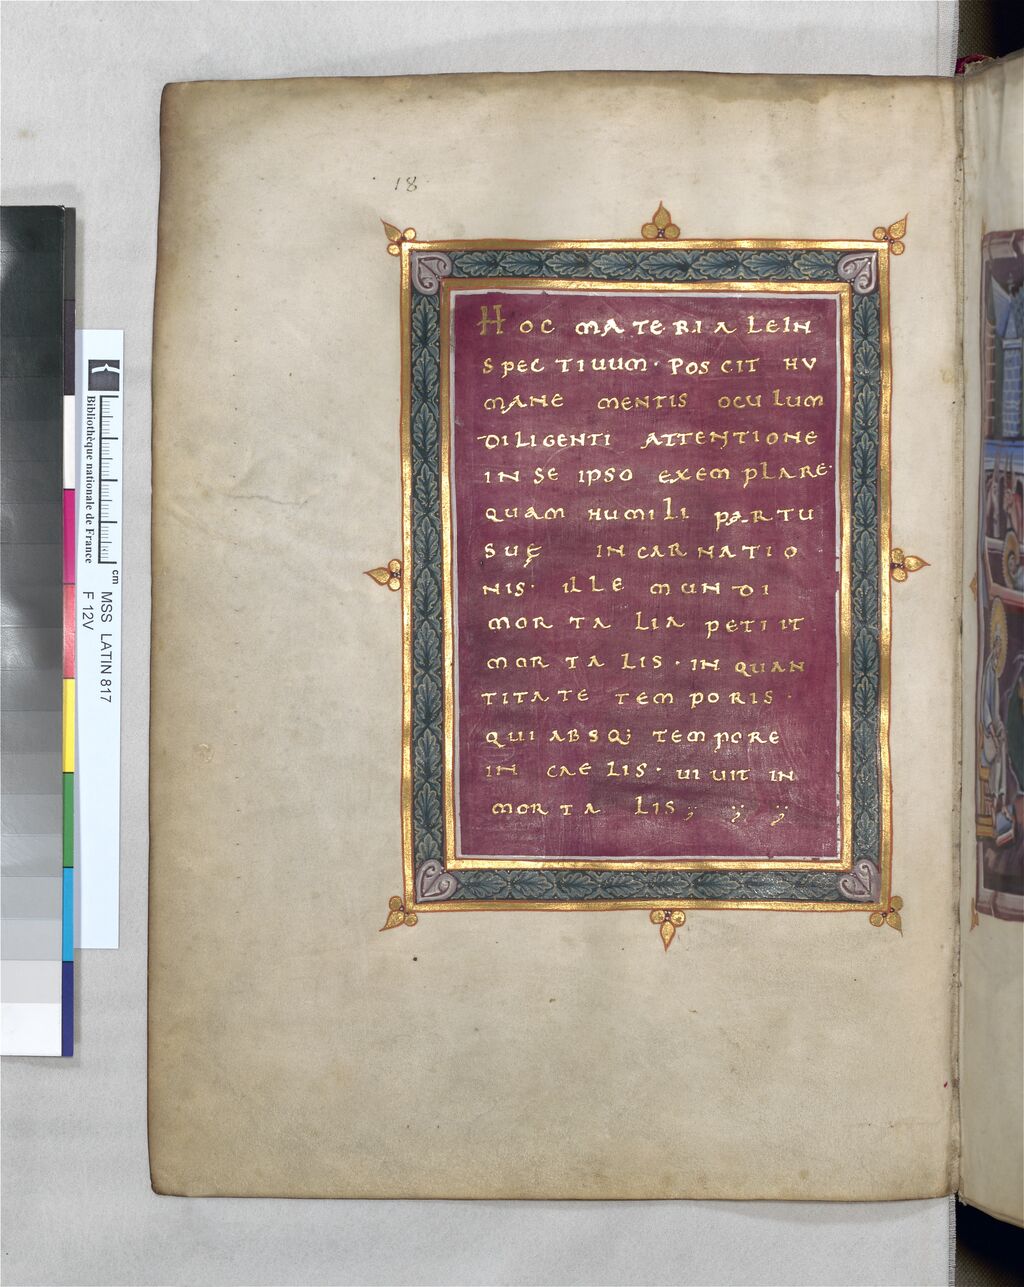 18
HOC MATERIALE IN
SPECTIUUM· POSCIT HU
MANE MENTIS OCULUM
DILIGENTI ATTENTIONE
IN SE IPSO EXEMPLARE·
QUAM HUMILI PARTU
SUĘ INCARNATIO
NIS· ILLE MUNDI
MORTALIA PETIIT
MORTALIS· IN QUAN
TITATE TEMPORIS·
QUI ABSQ; TEMPORE
IN CAELIS· UIUIT IN
MORTALIS;
Bibliothèque nationale de France
cm
MSS LATIN 817
F 12V